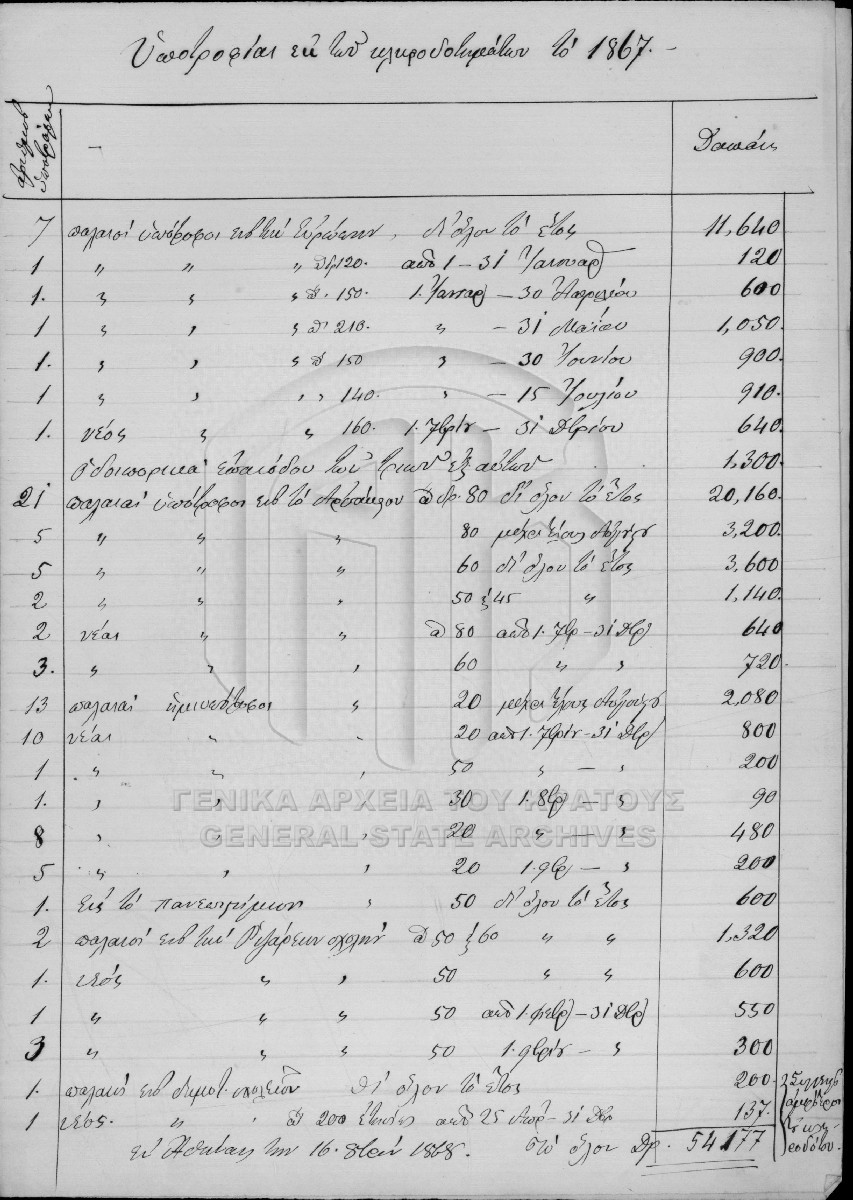 Ὑποτροφίαι ἐκ τῶν κληροδοτημάτων τὸ 1867. —
ἀριθμὸς ὑποτρόφων — Δαπάνη
7 παλαιοὶ ὑπότροφοι εἰς τὴν Εὐρώπην, δι' ὅλον τὸ ἔτος 11,640
1 " " " Δρ. 120. ἀπὸ 1 – 31 Ἰανουαρ 120
1. " " " 150. 1. Ἰανουαρ – 30 Ἀπριλίου 600
1 " " " 210. " – 31 Μαΐου 1,050.
1. " " " 150 " – 30 Ἰουνίου 900.
1 " " " " 140. " – 15 Ἰουλίου 910.
1. νέος " " 160. 1. 7βρίου – 31 Δβρίου 640.
Ὁδοιπορικὰ ἐπανόδου τῶν τριῶν ἐξ αὐτῶν 1,300.
21 παλαιαὶ ὑπότροφοι εἰς τὸ Ἀρσάκειον ἃ δρ. 80 δι' ὅλον τὸ ἔτος 20,160.
5 " " " 80 μέχρι τέλους Αὐγούστου 3,200.
5 " " " 60 δι' ὅλον τὸ ἔτος 3,600
2 " " " 50 ἐξ 45 " 1,140.
2 νέαι " " ἃ 80 ἀπὸ 1. 7βρ – 31 Δβρ 640
3. " " " 60 " " 720.
13 παλαιαὶ ἡμιυπότροφοι " 20 μέχρι τέλους Αὐγούστου 2,080
10 νέαι " " 20 ἀπὸ 1. 7βρίου – 31 Δβρ 800
1 " " " 50 " – " 200
1. " " " 30 1. 8βρ – " 90
8 " " " 20 " – " 480
5 " " " 20 1. 9βρ – " 200
1. Εἰς τὸ πανεπιστήμιον " 50 δι' ὅλον τὸ ἔτος 600
2 παλαιοὶ εἰς τὴν Ῥιζάρειον σχολὴν ἃ 50 ἐξ 60 " " 1,320
1. νέος " " 50 " " 600
1 " " " 50 ἀπὸ 1. Φεβρ – 31 Δβρ 550
3 " " " 50 1. 9βρίου – " 300
1. παλαιὸς εἰς δημοτ. σχολεῖον δι' ὅλον τὸ ἔτος 200.
1 νέος. " " 200 ἐτησίως ἀπὸ 25 Ἀπρ – 31 Δβρ 137.
ἐν Ἀθήναις τῇ 16. 8βρίου 1868. Τὸ ὅλον Δρ. 54177
ΓΕΝΙΚΑ ΑΡΧΕΙΑ ΤΟΥ ΚΡΑΤΟΥΣ
GENERAL STATE ARCHIVES